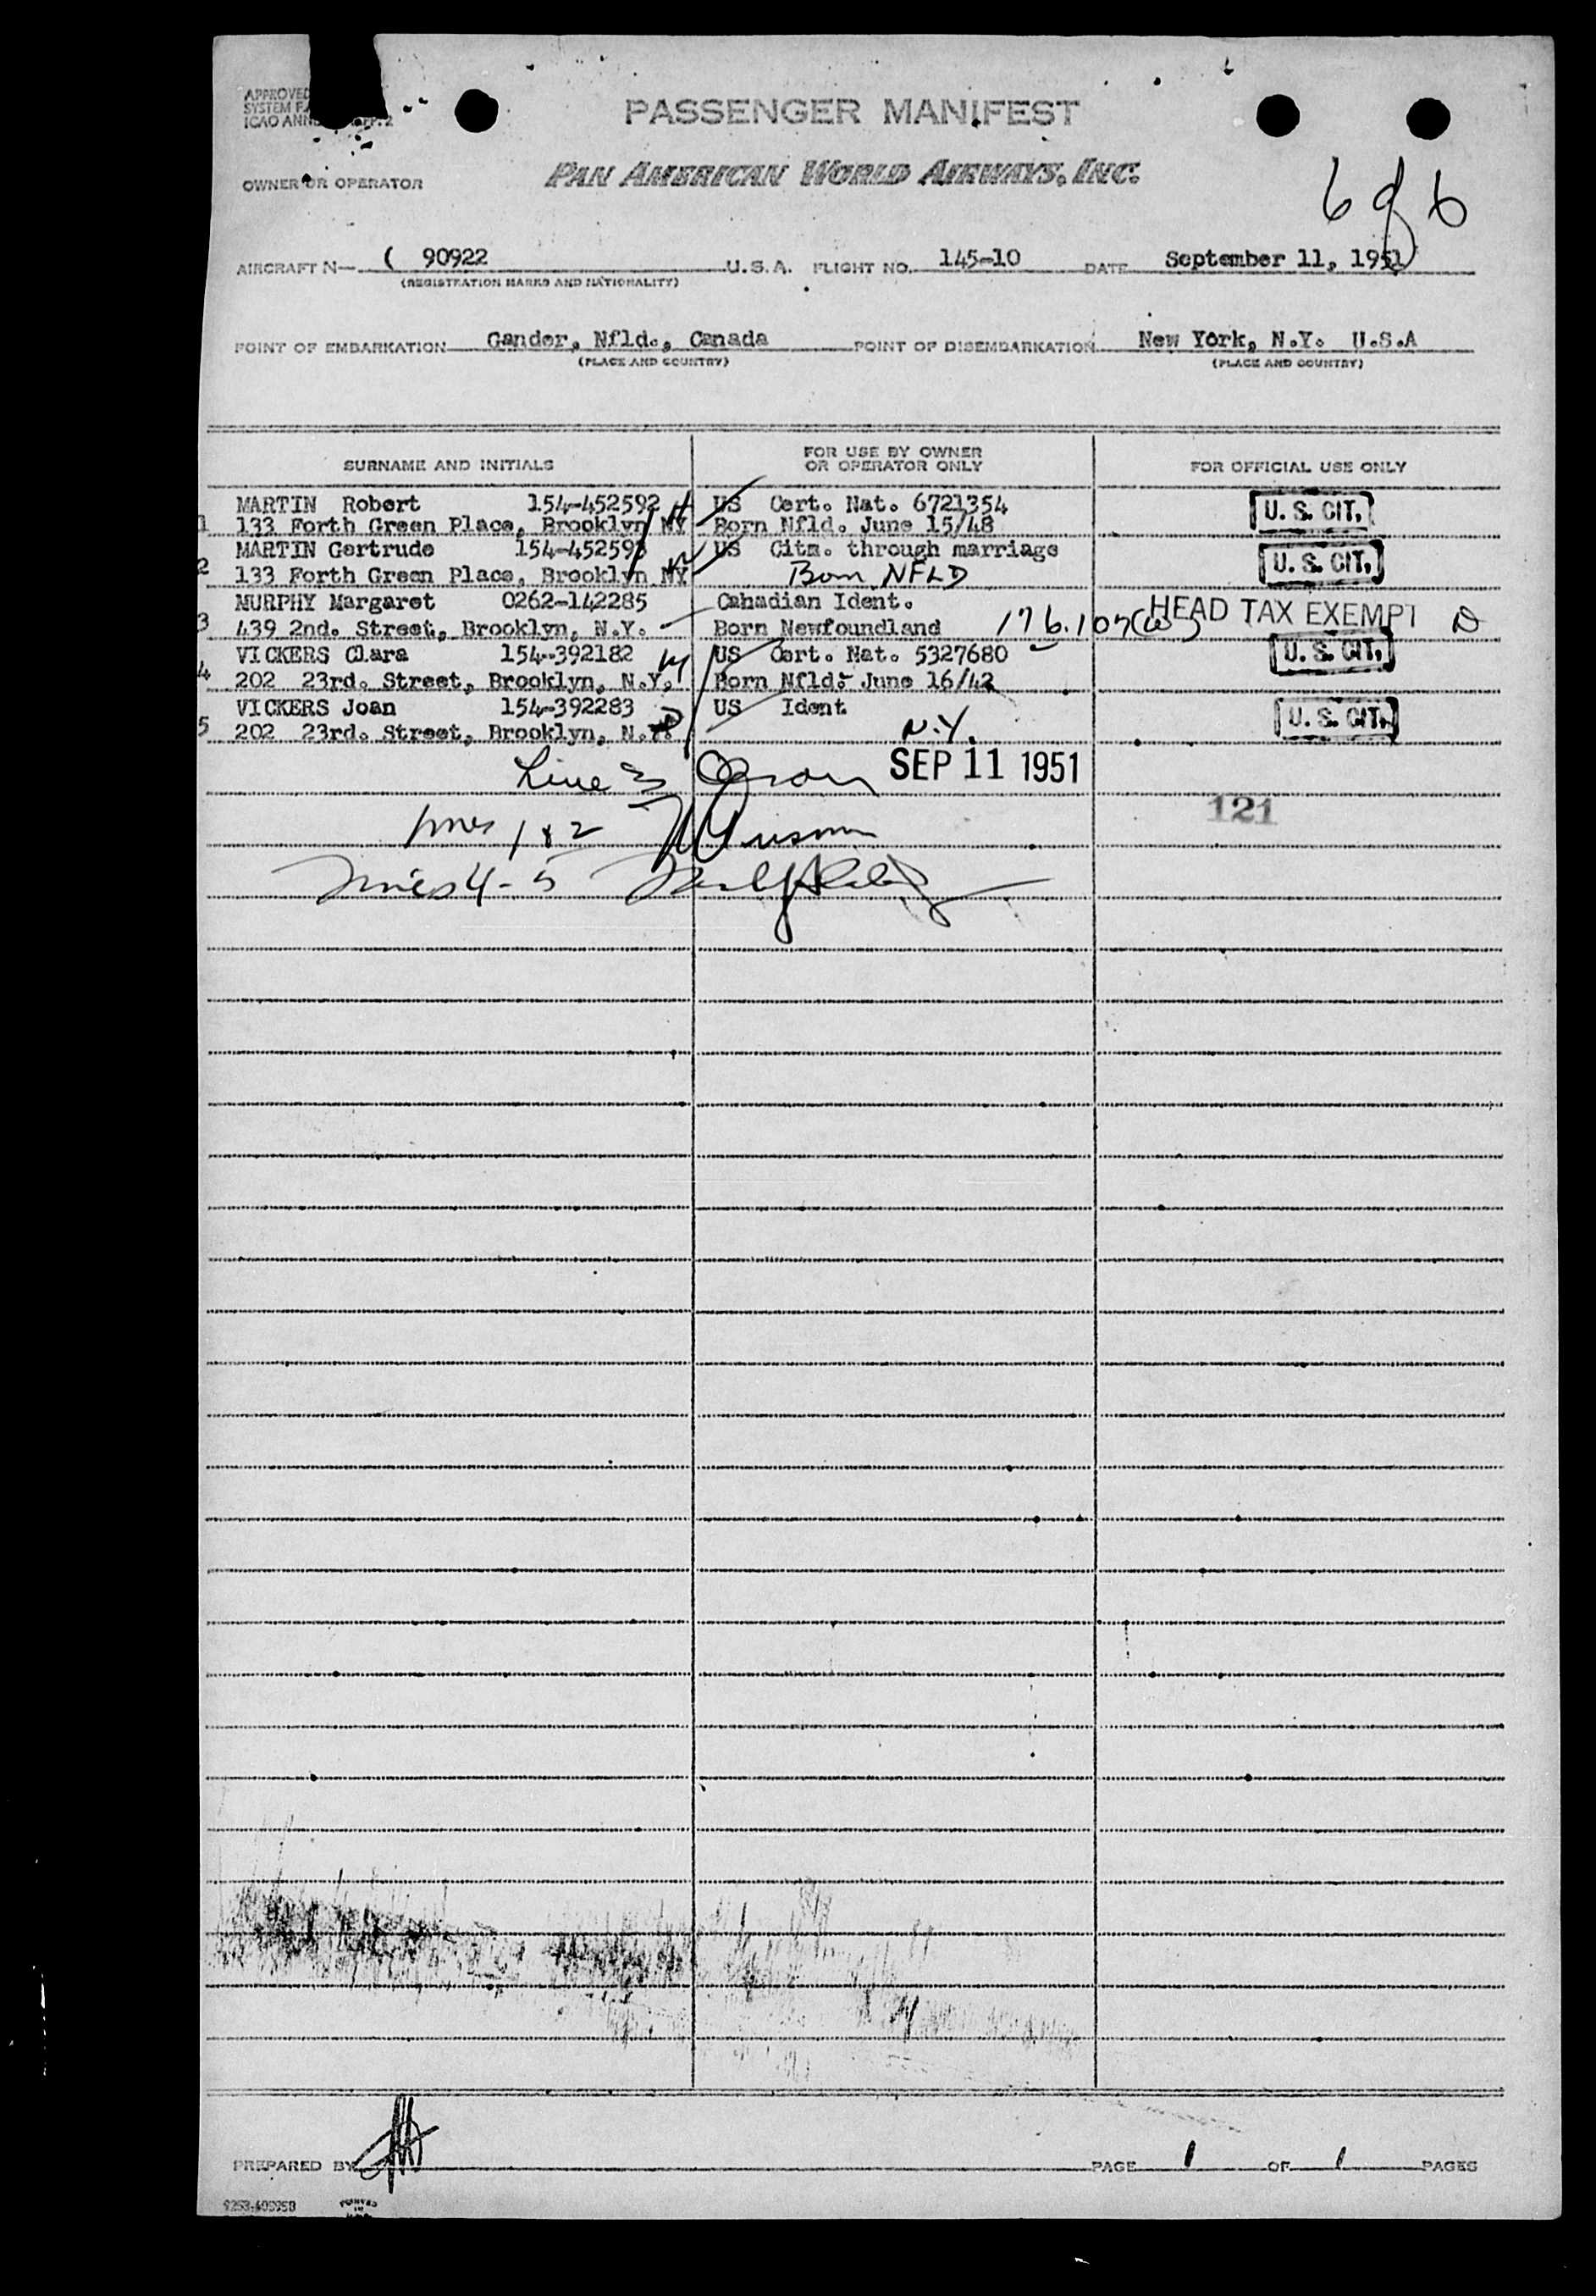 APPROVED
SYSTEM
ICAO
PASSENGER MANIFEST
OWNER OR OPERATOR
PAN AMERICAN WORLD AIRWAYS, INC.
6 of 6
AIRCRAFT N— ( 90922 U.S.A. FLIGHT NO. 145-10 DATE September 11, 1951
(REGISTRATION MARKS AND NATIONALITY)
POINT OF EMBARKATION Gander, Nfld., Canada POINT OF DISEMBARKATION New York, N.Y. U.S.A
(PLACE AND COUNTRY) (PLACE AND COUNTRY)
SURNAME AND INITIALS FOR USE BY OWNER OR OPERATOR ONLY FOR OFFICIAL USE ONLY
MARTIN Robert 154-452592 US Cert. Nat. 6721354 U. S. CIT.
1 133 Forth Green Place, Brooklyn NY Born Nfld. June 15/48
MARTIN Gertrude 154-452593 US Citz. through marriage U. S. CIT.
2 133 Forth Green Place, Brooklyn NY Born NFLD
MURPHY Margaret 0262-142285 Cahadian Ident. HEAD TAX EXEMPT
3 439 2nd. Street, Brooklyn, N.Y. Born Newfoundland
VICKERS Clara 154-392182 US Cert. Nat. 5327680 U. S. CIT.
4 202 23rd. Street, Brooklyn, N.Y. Born Nfld. June 16/42
VICKERS Joan 154-392283 US Ident U. S. CIT.
5 202 23rd. Street, Brooklyn, N.Y. N.Y.
Line 3 SEP 11 1951
lines 1 & 2 121
lines 4-5
PREPARED BY PAGE 1 OF 1 PAGES
PRINTED
IN